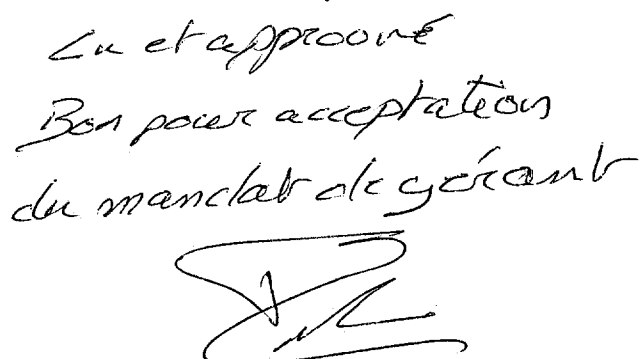 Lu et approuvé
Bon pour acceptation
du mandat de gérant